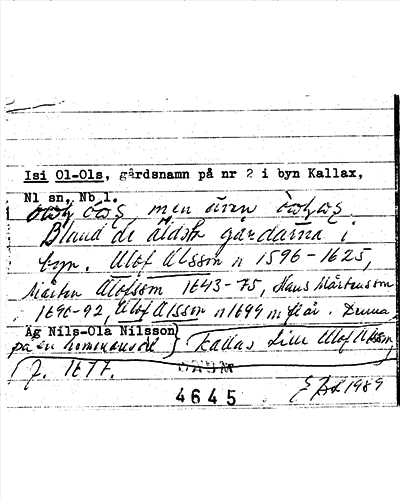 Isi Ol-Ols, gårdsnamn på nr 2 i byn Kallax,
Nl sn, Nb l.
men även
Bland de äldsta gårdarna i
byn. Olof Olsson n 1596-1625,
Mårten Olofsson 1643-75, Hans Mårtensson
1690-92, Olof Olsson n 1699 m fl år. Denna
Äg Nils-Ola Nilsson
på en kallas Lill Olof Olsson
f. 1677.
4645
1989